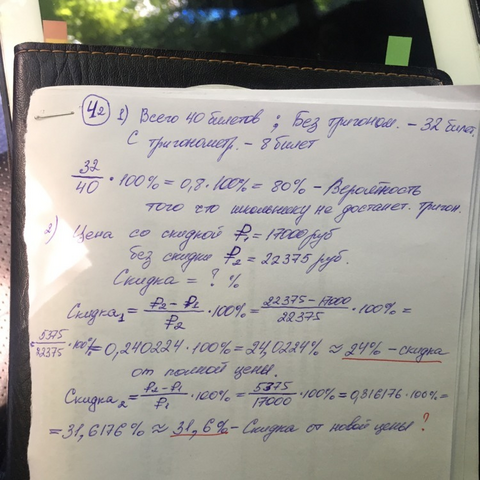 42 1) Всего 40 билетов ; Без тригоном. - 32 билет.
С тригонометр. - 8 билет
32/40 · 100% = 0,8 · 100% = 80% - Вероятность
того что школьнику не достанет. тригон.
2) Цена со скидкой ₽₁ = 17000 руб
без скидки ₽₂ = 22375 руб.
Скидка = ? %
Скидка₁ = (₽₂ - ₽₁)/₽₂ · 100% = (22375 - 17000)/22375 · 100% =
= 5375/22375 · 100% = 0,240224 · 100% = 24,0224% ≈ 24% - скидка
от полной цены.
Скидка₂ = (₽₂ - ₽₁)/₽₁ · 100% = 5375/17000 · 100% = 0,316176 · 100% =
= 31,6176% ≈ 31,6% - Скидка от новой цены ?